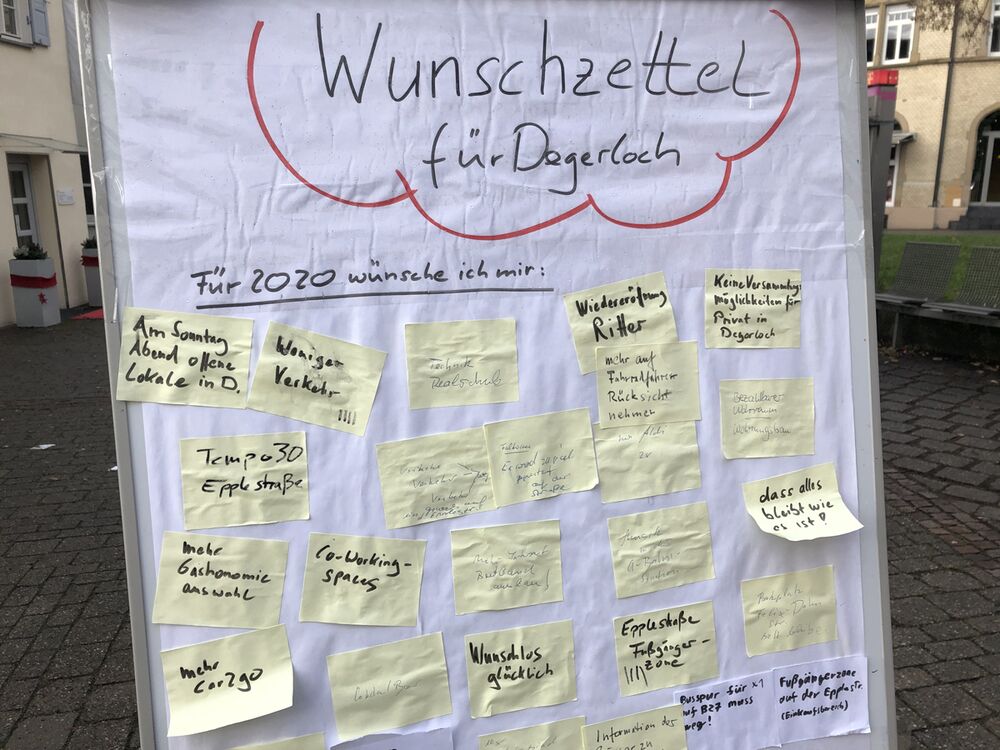 Wunschzettel
für Degerloch
Für 2020 wünsche ich mir:
Am Sonntag
Abend offene
Lokale in D.
Weniger
Verkehr
Technik
Realschule
Wiedereröfnung
Ritter
Keine Versammlungs
möglichkeiten für
Privat in
Degerloch
mehr auf
Fahrradfahrer
Rücksicht
nehmer
Bezahlbarer
Wohnraum
Wohnungsbau
Tempo 30
Epplestraße
Verkehr
auf der
Straße
Aldi
zu
dass alles
bleibt wie
es ist!
mehr
Gastronomie
auswahl
Co-Working-
spaces
mehr Internet
Breitband
ausbau!
Epplestraße
Fußgänger-
zone
mehr
car2go
Wunschlos
glücklich
Busspur für x1
auf B27 muss
weg!
Fußgängerzone
auf der Epplestr.
(Einkaufsbereich)
Information der
Bürger zu